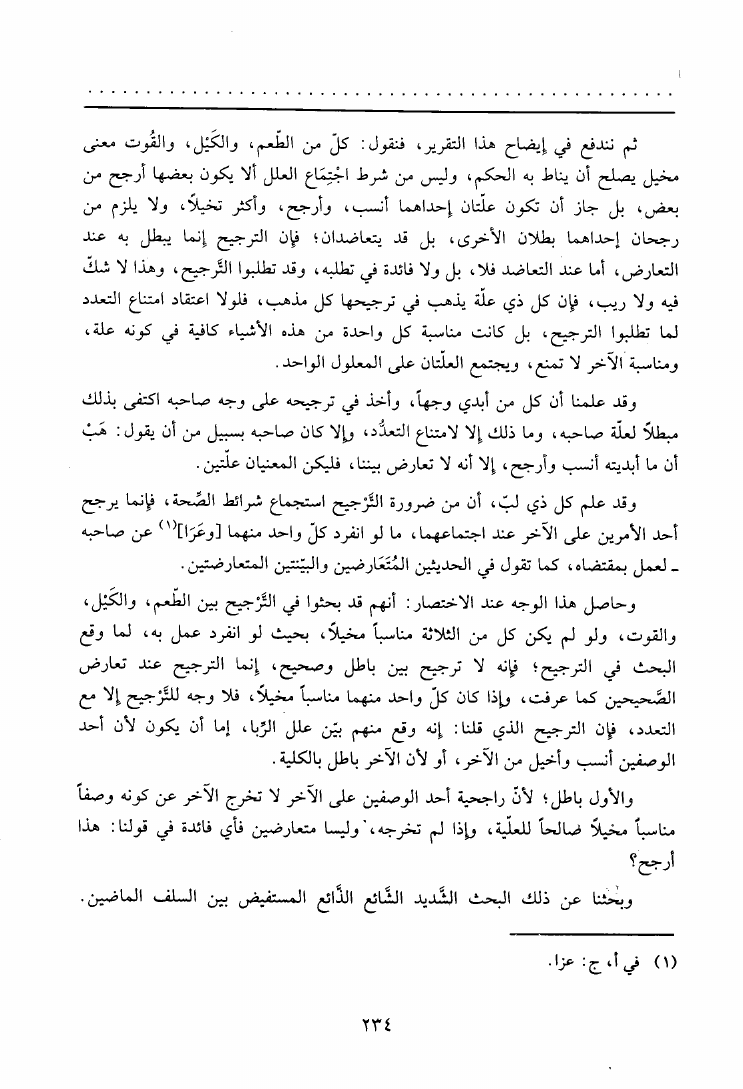 ثم نندفع في إيضاح هذا التقرير، فنقول: كلّ من الطّعم، والكَيْل، والقُوت معنى
مخيل يصلح أن يناط به الحكم، وليس من شرط اجْتِمَاع العلل ألا يكون بعضها أرجح من
بعض، بل جاز أن تكون علّتان إحداهما أنسب، وأرجح، وأكثر تخيلاً، ولا يلزم من
رجحان إحداهما بطلان الأخرى، بل قد يتعاضدان؛ فإن الترجيح إنما يبطل به عند
التعارض، أما عند التعاضد فلا، بل ولا فائدة في تطلبه، وقد تطلبوا التَّرجيح، وهذا لا شكّ
فيه ولا ريب، فإن كل ذي علّة يذهب في ترجيحها كل مذهب، فلولا اعتقاد امتناع التعدد
لما تطلبوا الترجيح، بل كانت مناسبة كل واحدة من هذه الأشياء كافية في كونه علة،
ومناسبة الآخر لا تمنع، ويجتمع العلّتان على المعلول الواحد.
وقد علمنا أن كل من أبدي وجهاً، وأخذ في ترجيحه على وجه صاحبه اكتفى بذلك
مبطلاً لعلّة صاحبه، وما ذلك إلا لامتناع التعدُّد، وإلا كان صاحبه بسبيل من أن يقول: هَبْ
أن ما أبديته أنسب وأرجح، إلا أنه لا تعارض بيننا، فليكن المعنيان علّتين.
وقد علم كل ذي لبّ، أن من ضرورة التَّرْجيح استجماع شرائط الصِّحة، فإنما يرجح
أحد الأمرين على الآخر عند اجتماعهما، ما لو انفرد كلّ واحد منهما [وعَرَا](١) عن صاحبه
ـ لعمل بمقتضاه، كما تقول في الحديثين المُتَعَارضين والبيّنتين المتعارضتين.
وحاصل هذا الوجه عند الاختصار: أنهم قد بحثوا في التَّرْجيح بين الطّعم، والكَيْل،
والقوت، ولو لم يكن كل من الثلاثة مناسباً مخيلاً، بحيث لو انفرد عمل به، لما وقع
البحث في الترجيح؛ فإنه لا ترجيح بين باطل وصحيح، إنما الترجيح عند تعارض
الصَّحيحين كما عرفت، وإذا كان كلّ واحد منهما مناسباً مخيلاً، فلا وجه للتَّرْجيح إلا مع
التعدد، فإن الترجيح الذي قلنا: إنه وقع منهم بيّن علل الرِّبا، إما أن يكون لأن أحد
الوصفين أنسب وأخيل من الآخر، أو لأن الآخر باطل بالكلية.
والأول باطل؛ لأنّ راجحية أحد الوصفين على الآخر لا تخرج الآخر عن كونه وصفاً
مناسباً مخيلاً صالحاً للعلّية، وإذا لم تخرجه، وليسا متعارضين فأي فائدة في قولنا: هذا
أرجح؟
وبحْثنا عن ذلك البحث الشَّديد الشَّائع الذَّائع المستفيض بين السلف الماضين.
(١) في أ، ج: عزا.
٢٣٤